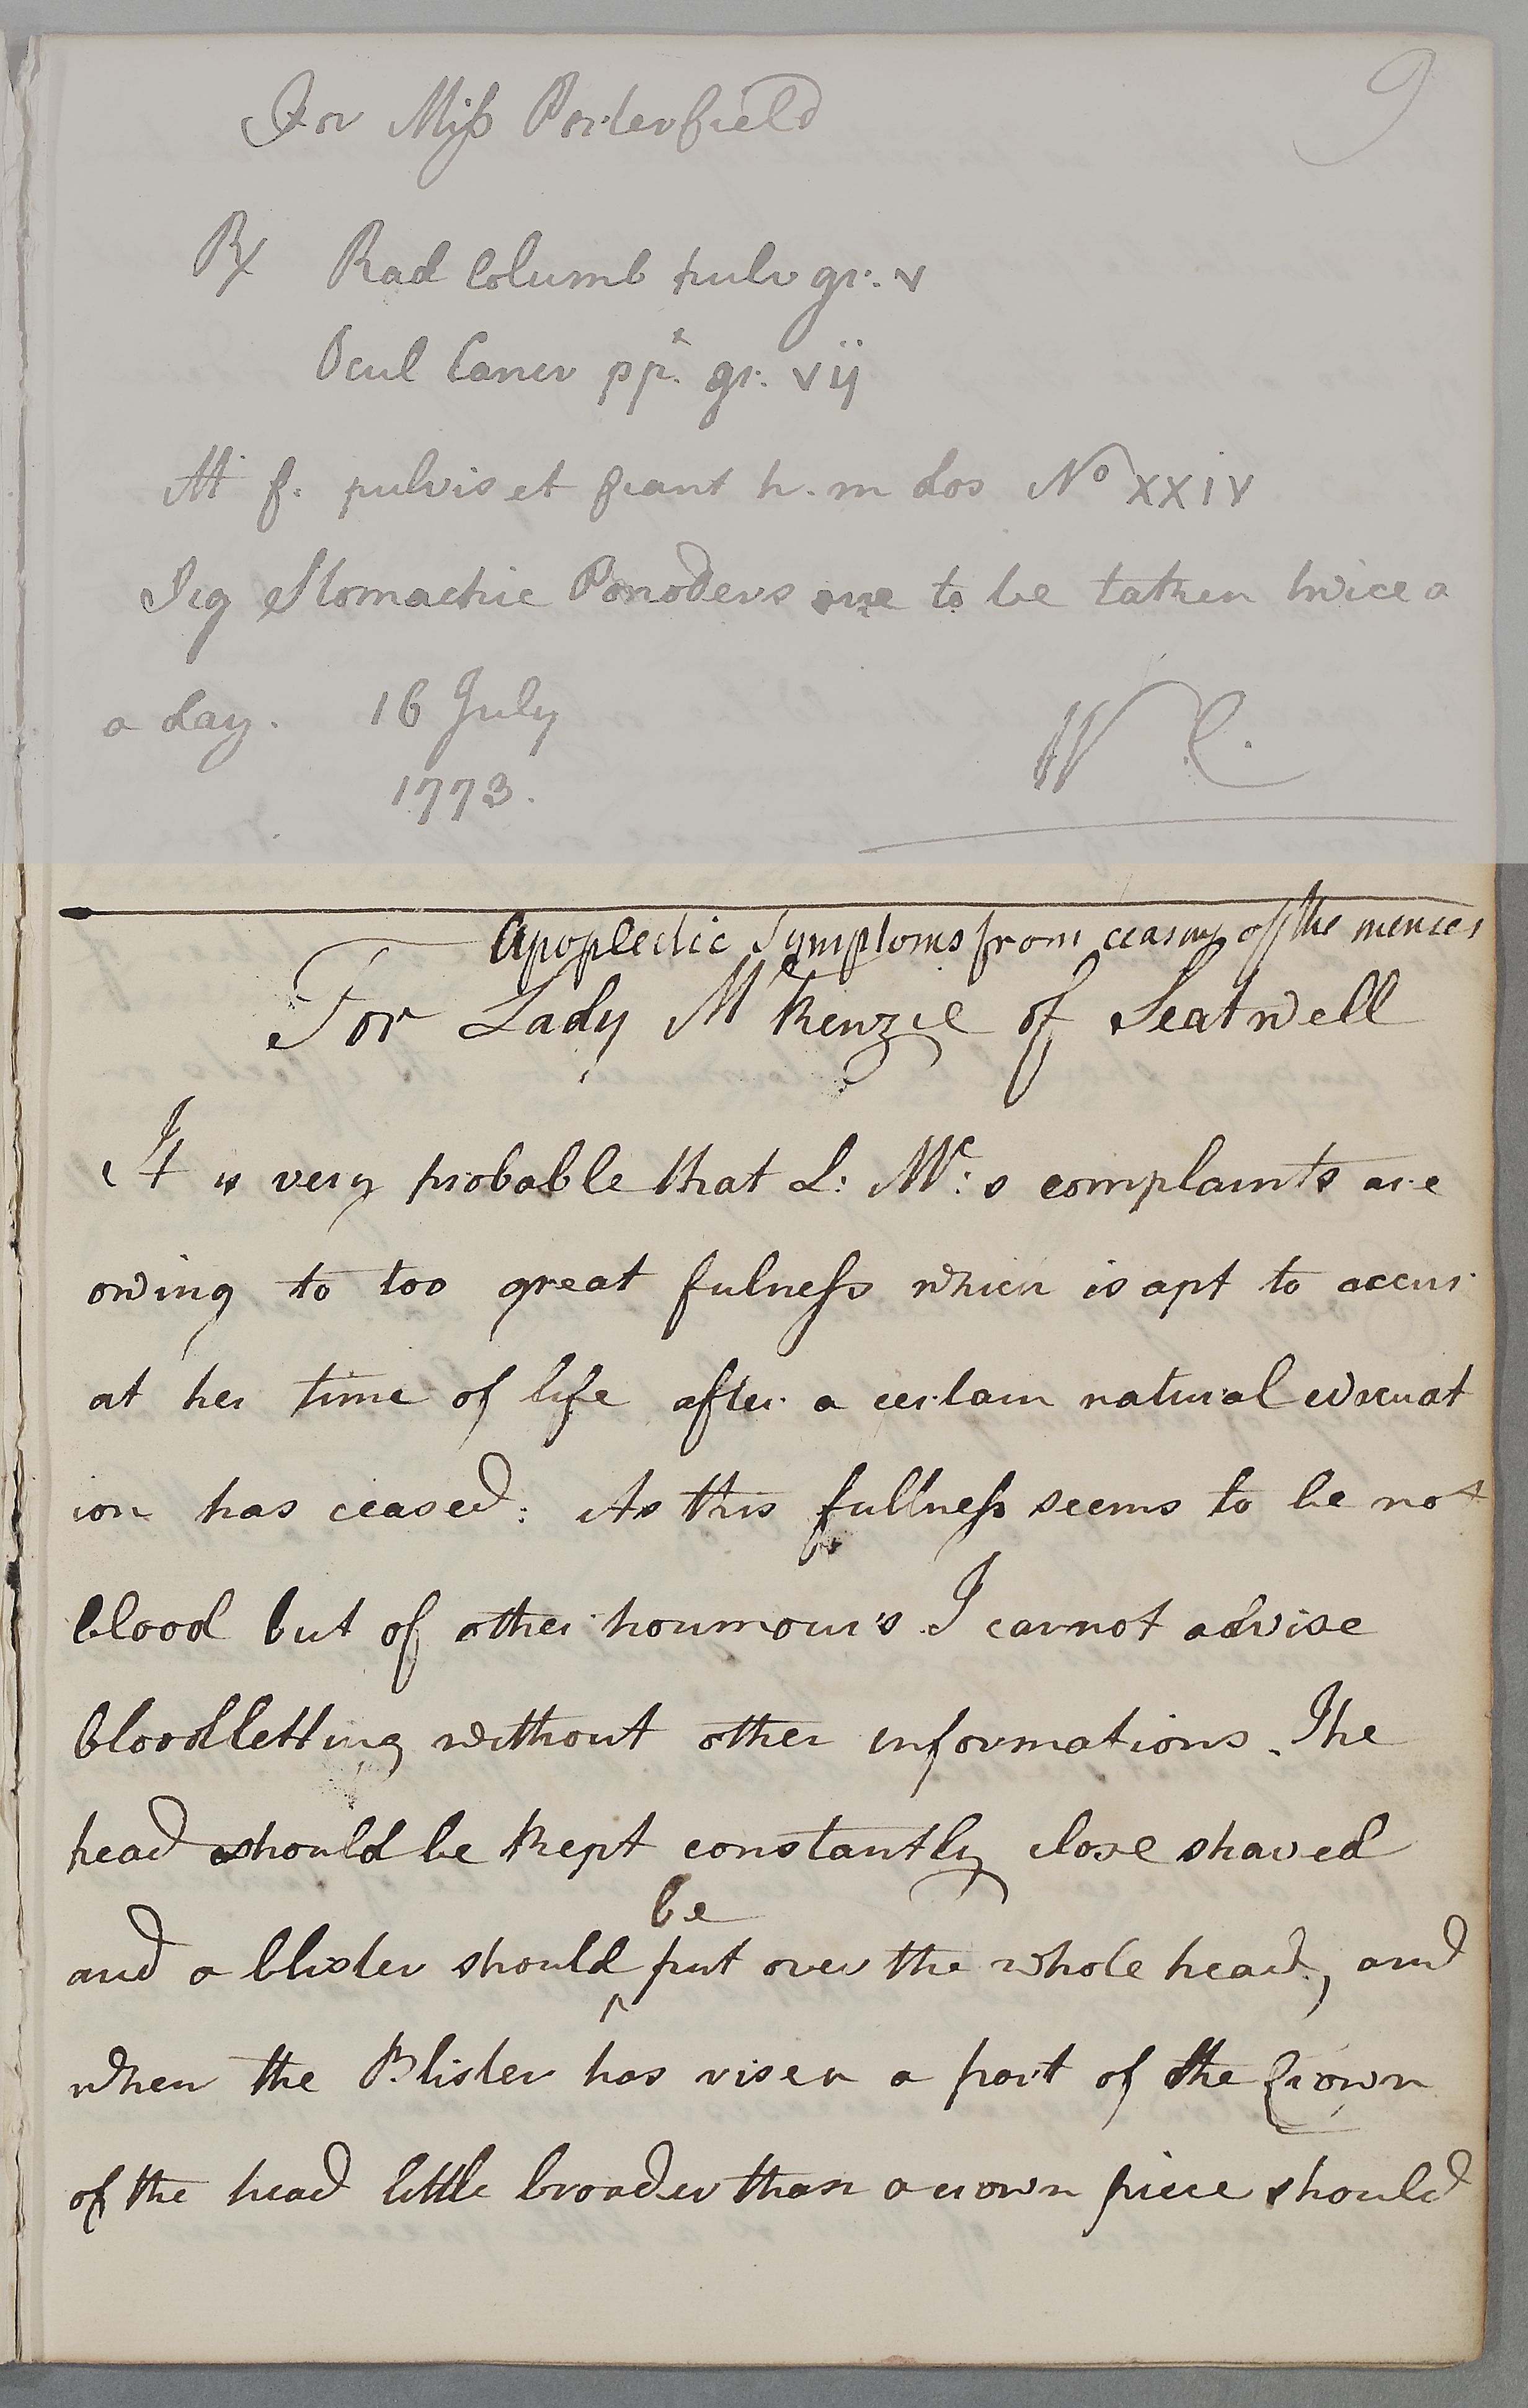 9
For Miss Porterfield
Rx Rad Columb pulv gr. v
Ocul Cancr ppt. gr. vij
M f. pulvis et fiant h. m dos No XXIV
Sig Stomachic Powders one to be taken twice a
a day. 16 July
1773.
W C.
Apoplectic Symptoms from ceasing of the menses
For Lady McKenzie of Seatwell
It is very probable that L: Mc:s complaints are
owing to too great fulness which is apt to occur
at her time of life after a certain natural evacuat
ion has ceased: As this fullness seems to be not
blood but of other houmours I cannot advise
bloodletting without other informations. The
head should be kept constantly close shaved
and a blister should be put over the whole head, and
when the Blister has risen a part of the Crown
of the head little broader than a crown piece should